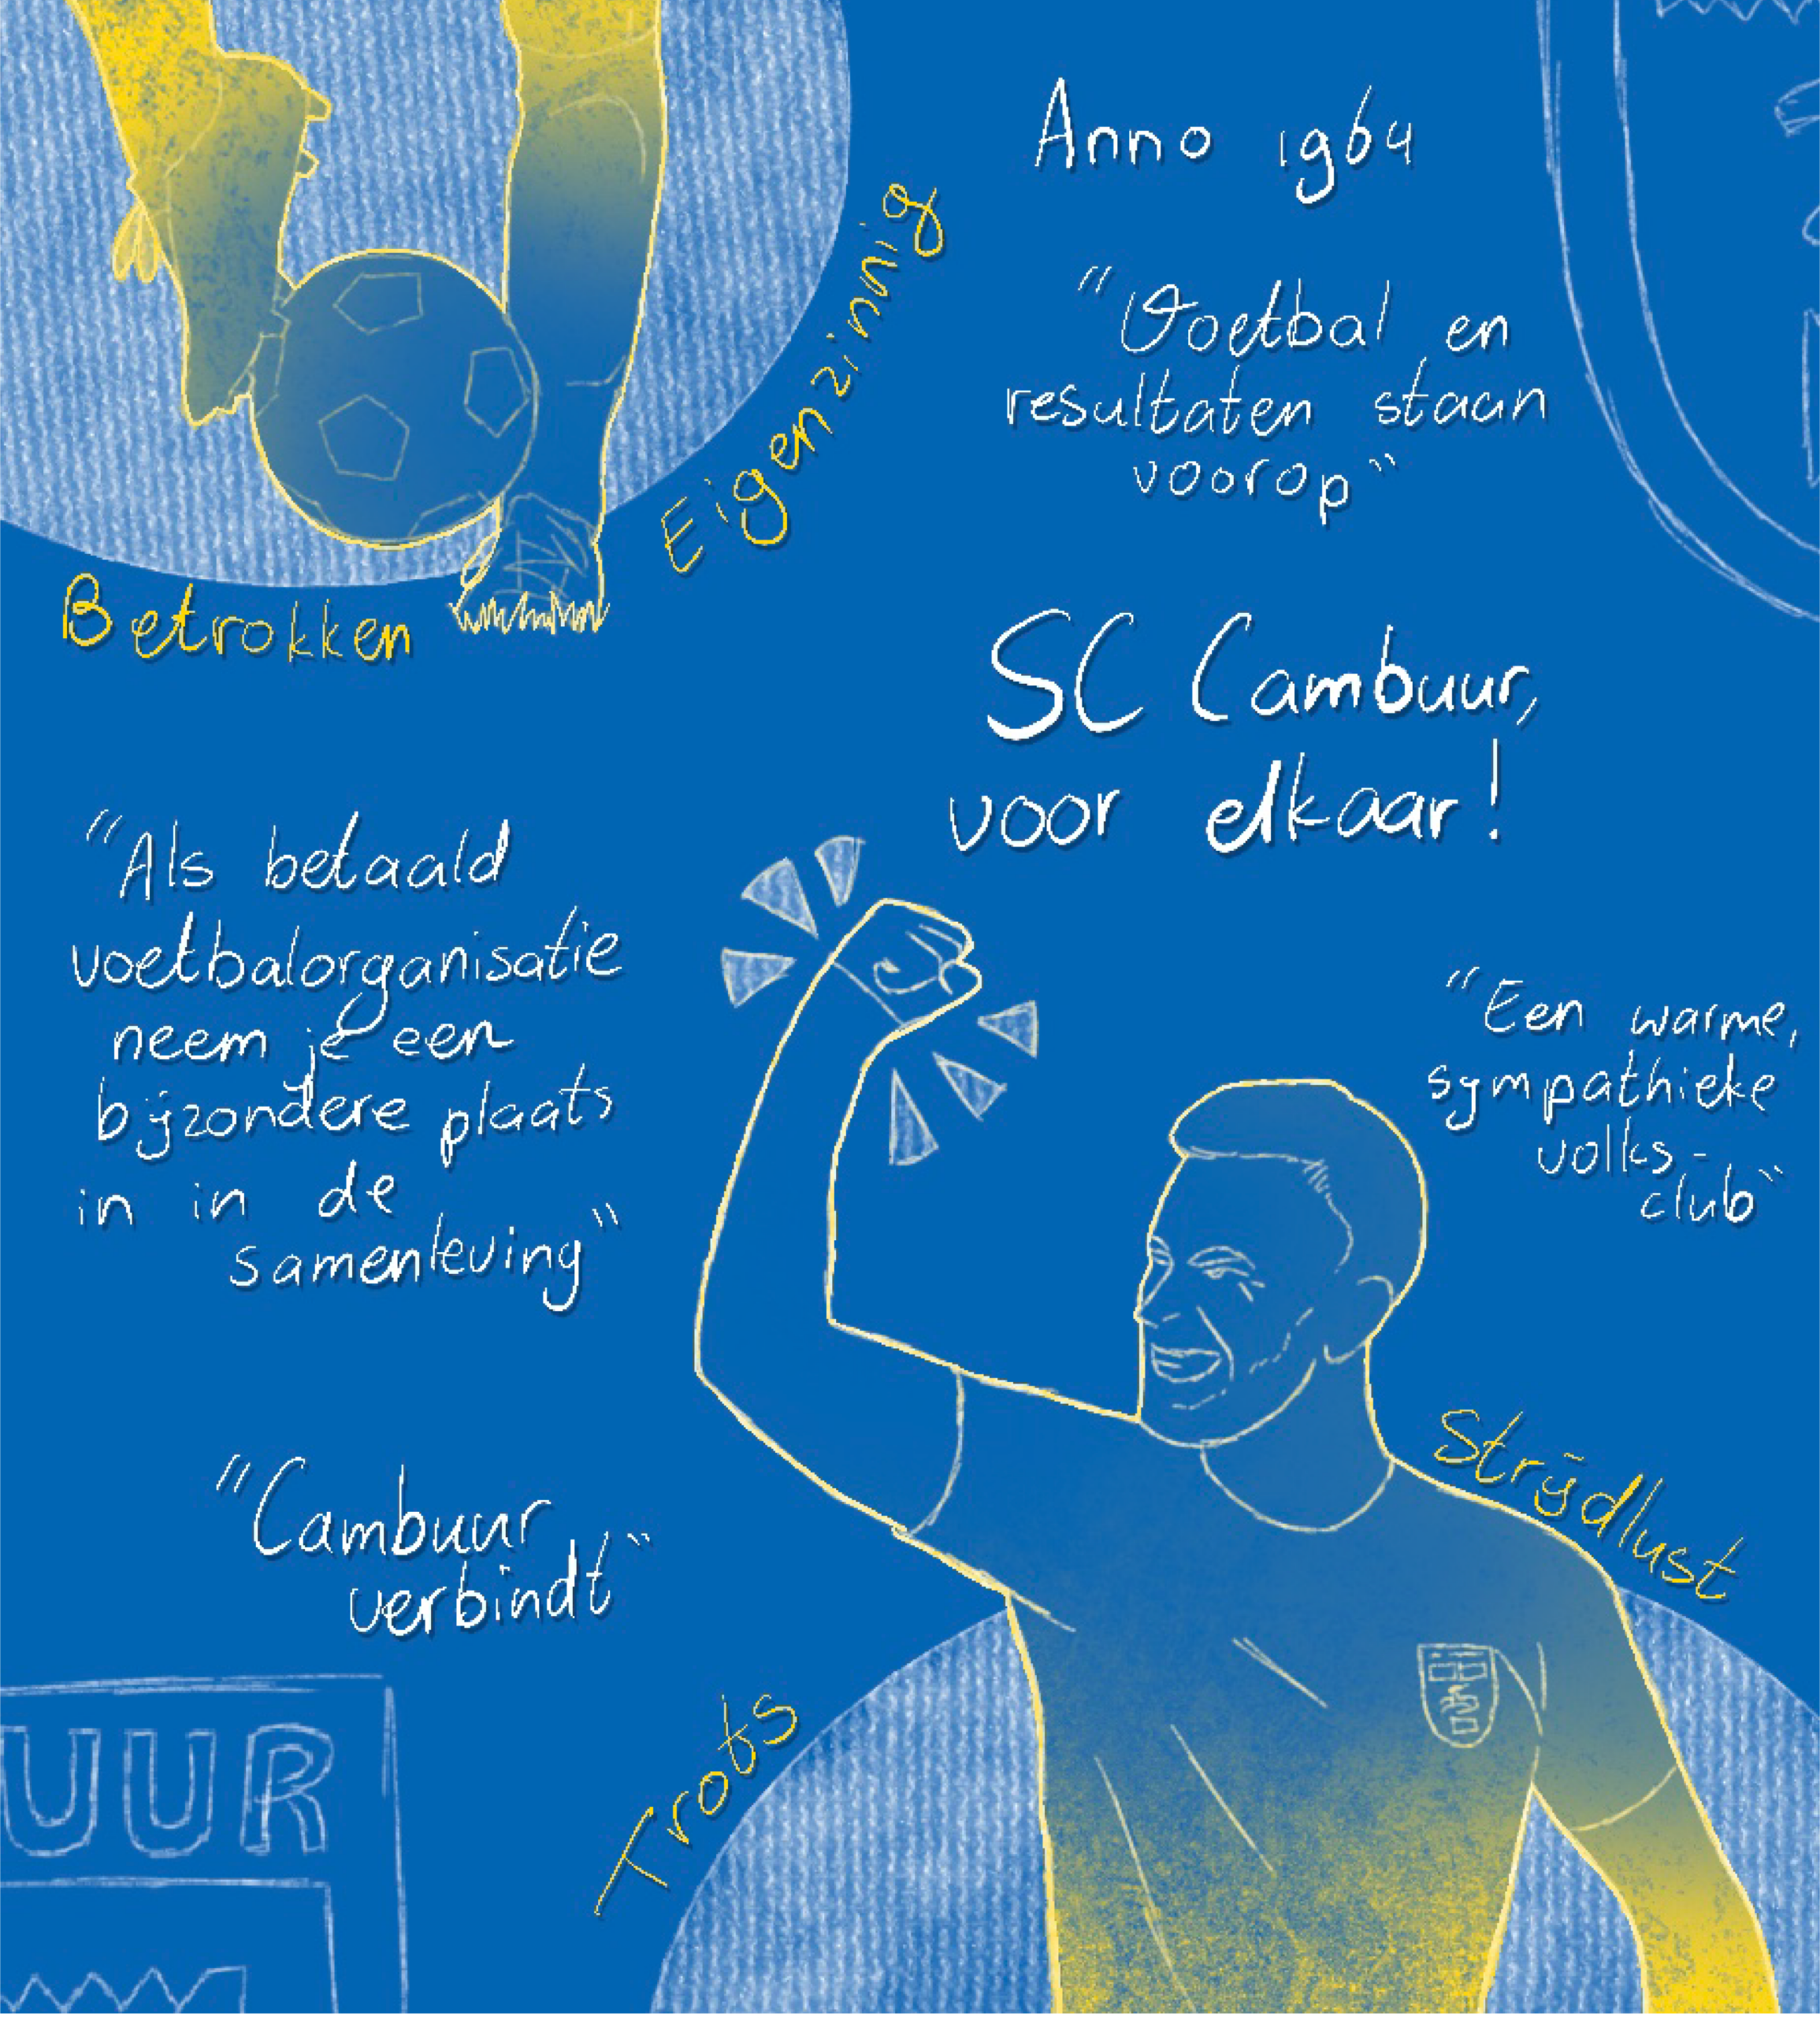 Anno 1964
"Voetbal en
resultaten staan
voorop"
Eigenzinnig
Betrokken
SC Cambuur,
voor elkaar!
"Als betaald
voetbalorganisatie
neem je een
bijzondere plaats
in in de
samenleving"
"Een warme,
sympathieke
volks-
club"
"Cambuur
verbindt"
Strijdlust
Trots
UUR